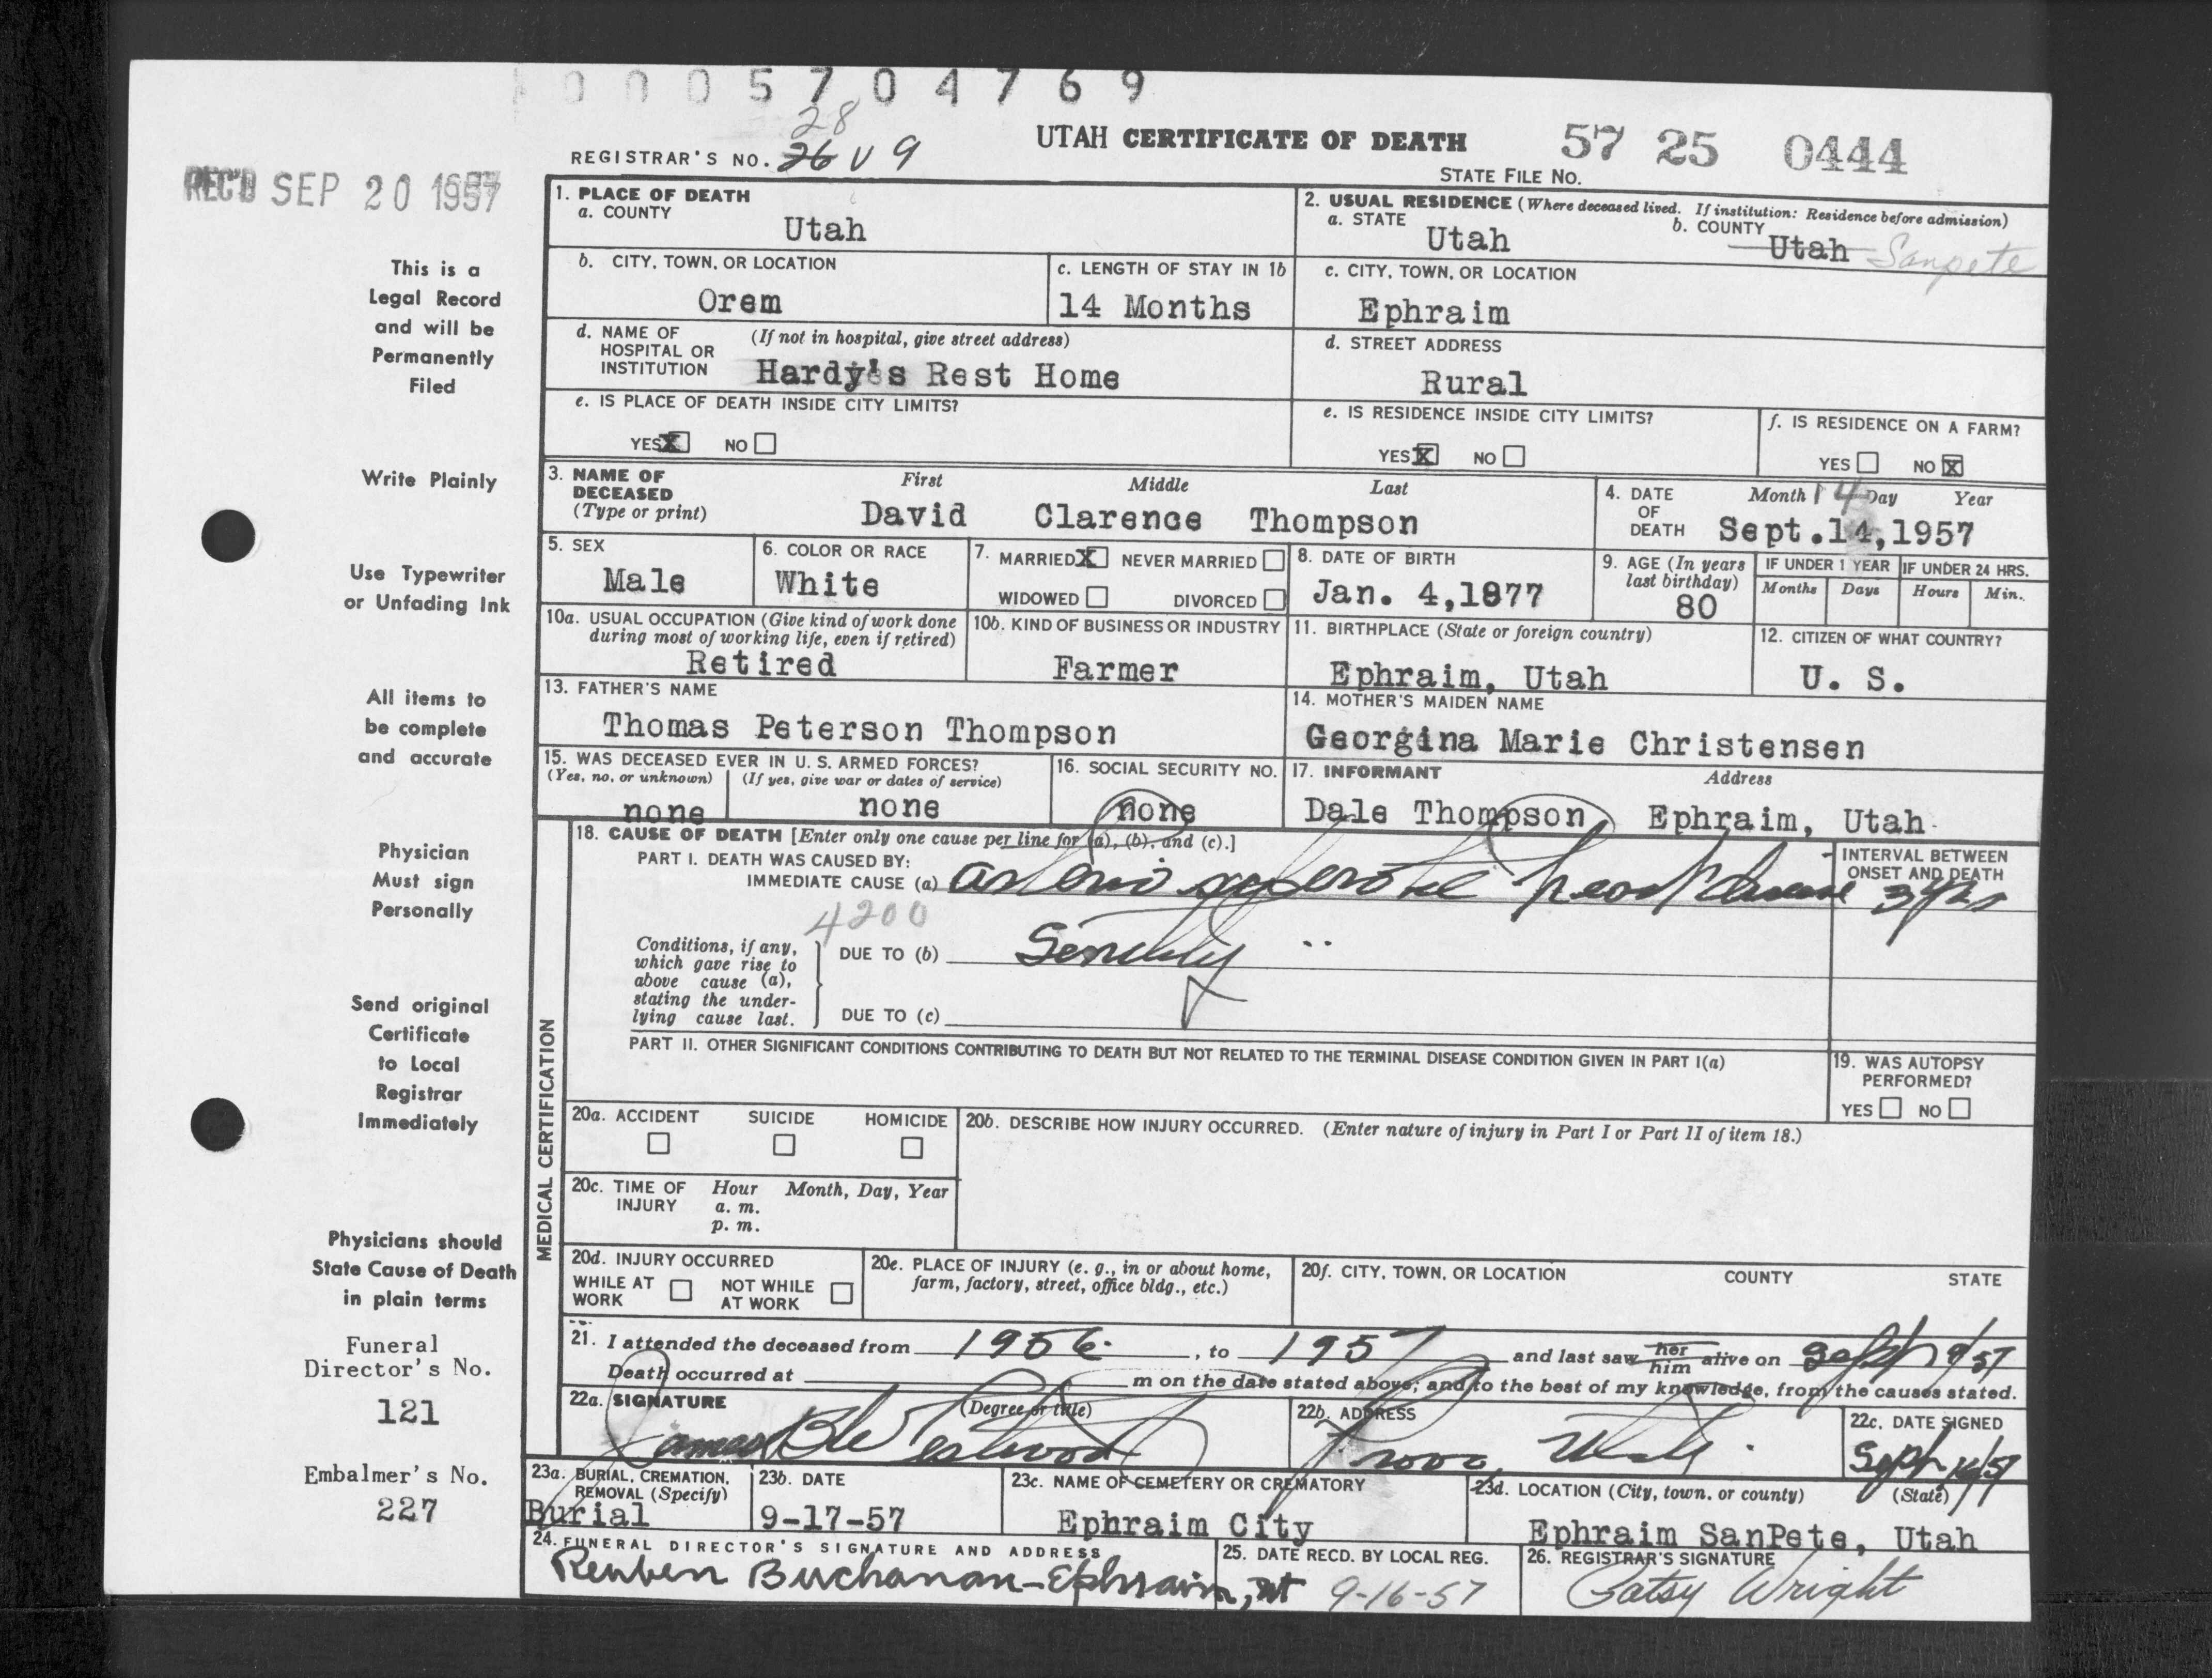 0 0 0 5 7 0 4 7 6 9
28
REGISTRAR'S NO. 26 V 9
UTAH CERTIFICATE OF DEATH
57 25 0444
STATE FILE NO.
REC'D SEP 20 1957
This is a
Legal Record
and will be
Permanently
Filed
Write Plainly
Use Typewriter
or Unfading Ink
All items to
be complete
and accurate
Physician
Must sign
Personally
Send original
Certificate
to Local
Registrar
Immediately
Physicians should
State Cause of Death
in plain terms
Funeral
Director's No.
121
Embalmer's No.
227
1. PLACE OF DEATH
a. COUNTY
Utah
2. USUAL RESIDENCE (Where deceased lived. If institution: Residence before admission)
a. STATE
Utah
b. COUNTY
Utah Sanpete
b. CITY, TOWN, OR LOCATION
Orem
c. LENGTH OF STAY IN 1b
14 Months
c. CITY, TOWN, OR LOCATION
Ephraim
d. NAME OF HOSPITAL OR INSTITUTION
(If not in hospital, give street address)
Hardy's Rest Home
d. STREET ADDRESS
Rural
e. IS PLACE OF DEATH INSIDE CITY LIMITS?
YES X NO
e. IS RESIDENCE INSIDE CITY LIMITS?
YES X NO
f. IS RESIDENCE ON A FARM?
YES NO X
3. NAME OF DECEASED (Type or print)
First Middle Last
David Clarence Thompson
4. DATE OF DEATH
Month 14 Day Year
Sept.14,1957
5. SEX
Male
6. COLOR OR RACE
White
7. MARRIED X NEVER MARRIED
WIDOWED DIVORCED
8. DATE OF BIRTH
Jan. 4,1877
9. AGE (In years last birthday)
80
IF UNDER 1 YEAR
Months Days
IF UNDER 24 HRS.
Hours Min.
10a. USUAL OCCUPATION (Give kind of work done during most of working life, even if retired)
Retired
10b. KIND OF BUSINESS OR INDUSTRY
Farmer
11. BIRTHPLACE (State or foreign country)
Ephraim, Utah
12. CITIZEN OF WHAT COUNTRY?
U. S.
13. FATHER'S NAME
Thomas Peterson Thompson
14. MOTHER'S MAIDEN NAME
Georgina Marie Christensen
15. WAS DECEASED EVER IN U. S. ARMED FORCES?
(Yes, no, or unknown) (If yes, give war or dates of service)
none none
16. SOCIAL SECURITY NO.
none
17. INFORMANT Address
Dale Thompson Ephraim, Utah
MEDICAL CERTIFICATION
18. CAUSE OF DEATH [Enter only one cause per line for (a), (b), and (c).]
PART I. DEATH WAS CAUSED BY:
IMMEDIATE CAUSE (a) arteriosclerotic heart disease
INTERVAL BETWEEN ONSET AND DEATH
3 yrs
4200
Conditions, if any,
which gave rise to
above cause (a),
stating the under-
lying cause last.
DUE TO (b) Senility
DUE TO (c)
PART II. OTHER SIGNIFICANT CONDITIONS CONTRIBUTING TO DEATH BUT NOT RELATED TO THE TERMINAL DISEASE CONDITION GIVEN IN PART I(a)
19. WAS AUTOPSY PERFORMED?
YES NO
20a. ACCIDENT SUICIDE HOMICIDE
20b. DESCRIBE HOW INJURY OCCURRED. (Enter nature of injury in Part I or Part II of item 18.)
20c. TIME OF INJURY
Hour Month, Day, Year
a. m.
p. m.
20d. INJURY OCCURRED
WHILE AT WORK NOT WHILE AT WORK
20e. PLACE OF INJURY (e. g., in or about home, farm, factory, street, office bldg., etc.)
20f. CITY, TOWN, OR LOCATION COUNTY STATE
21. I attended the deceased from 1956 , to 1957 and last saw her him alive on Sept 9/57
Death occurred at m on the date stated above; and to the best of my knowledge, from the causes stated.
22a. SIGNATURE (Degree or title)
James Westwood
22b. ADDRESS
Provo, Utah.
22c. DATE SIGNED
Sept 16/57
23a. BURIAL, CREMATION, REMOVAL (Specify)
Burial
23b. DATE
9-17-57
23c. NAME OF CEMETERY OR CREMATORY
Ephraim City
23d. LOCATION (City, town, or county) (State)
Ephraim SanPete, Utah
24. FUNERAL DIRECTOR'S SIGNATURE AND ADDRESS
Reuben Buchanan-Ephraim, Ut
25. DATE RECD. BY LOCAL REG.
9-16-57
26. REGISTRAR'S SIGNATURE
Patsy Wright